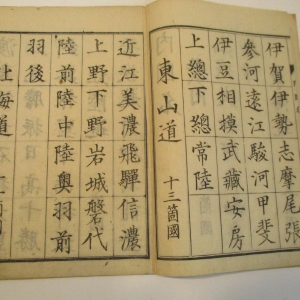 伊賀伊勢志摩尾張
參河遠江駿河甲斐
伊豆相摸武藏安房
上總下總常陸
東山道 十三箇國
近江美濃飛驒信濃
上野下野岩城磐代
陸前陸中陸奧羽前
羽後
海道